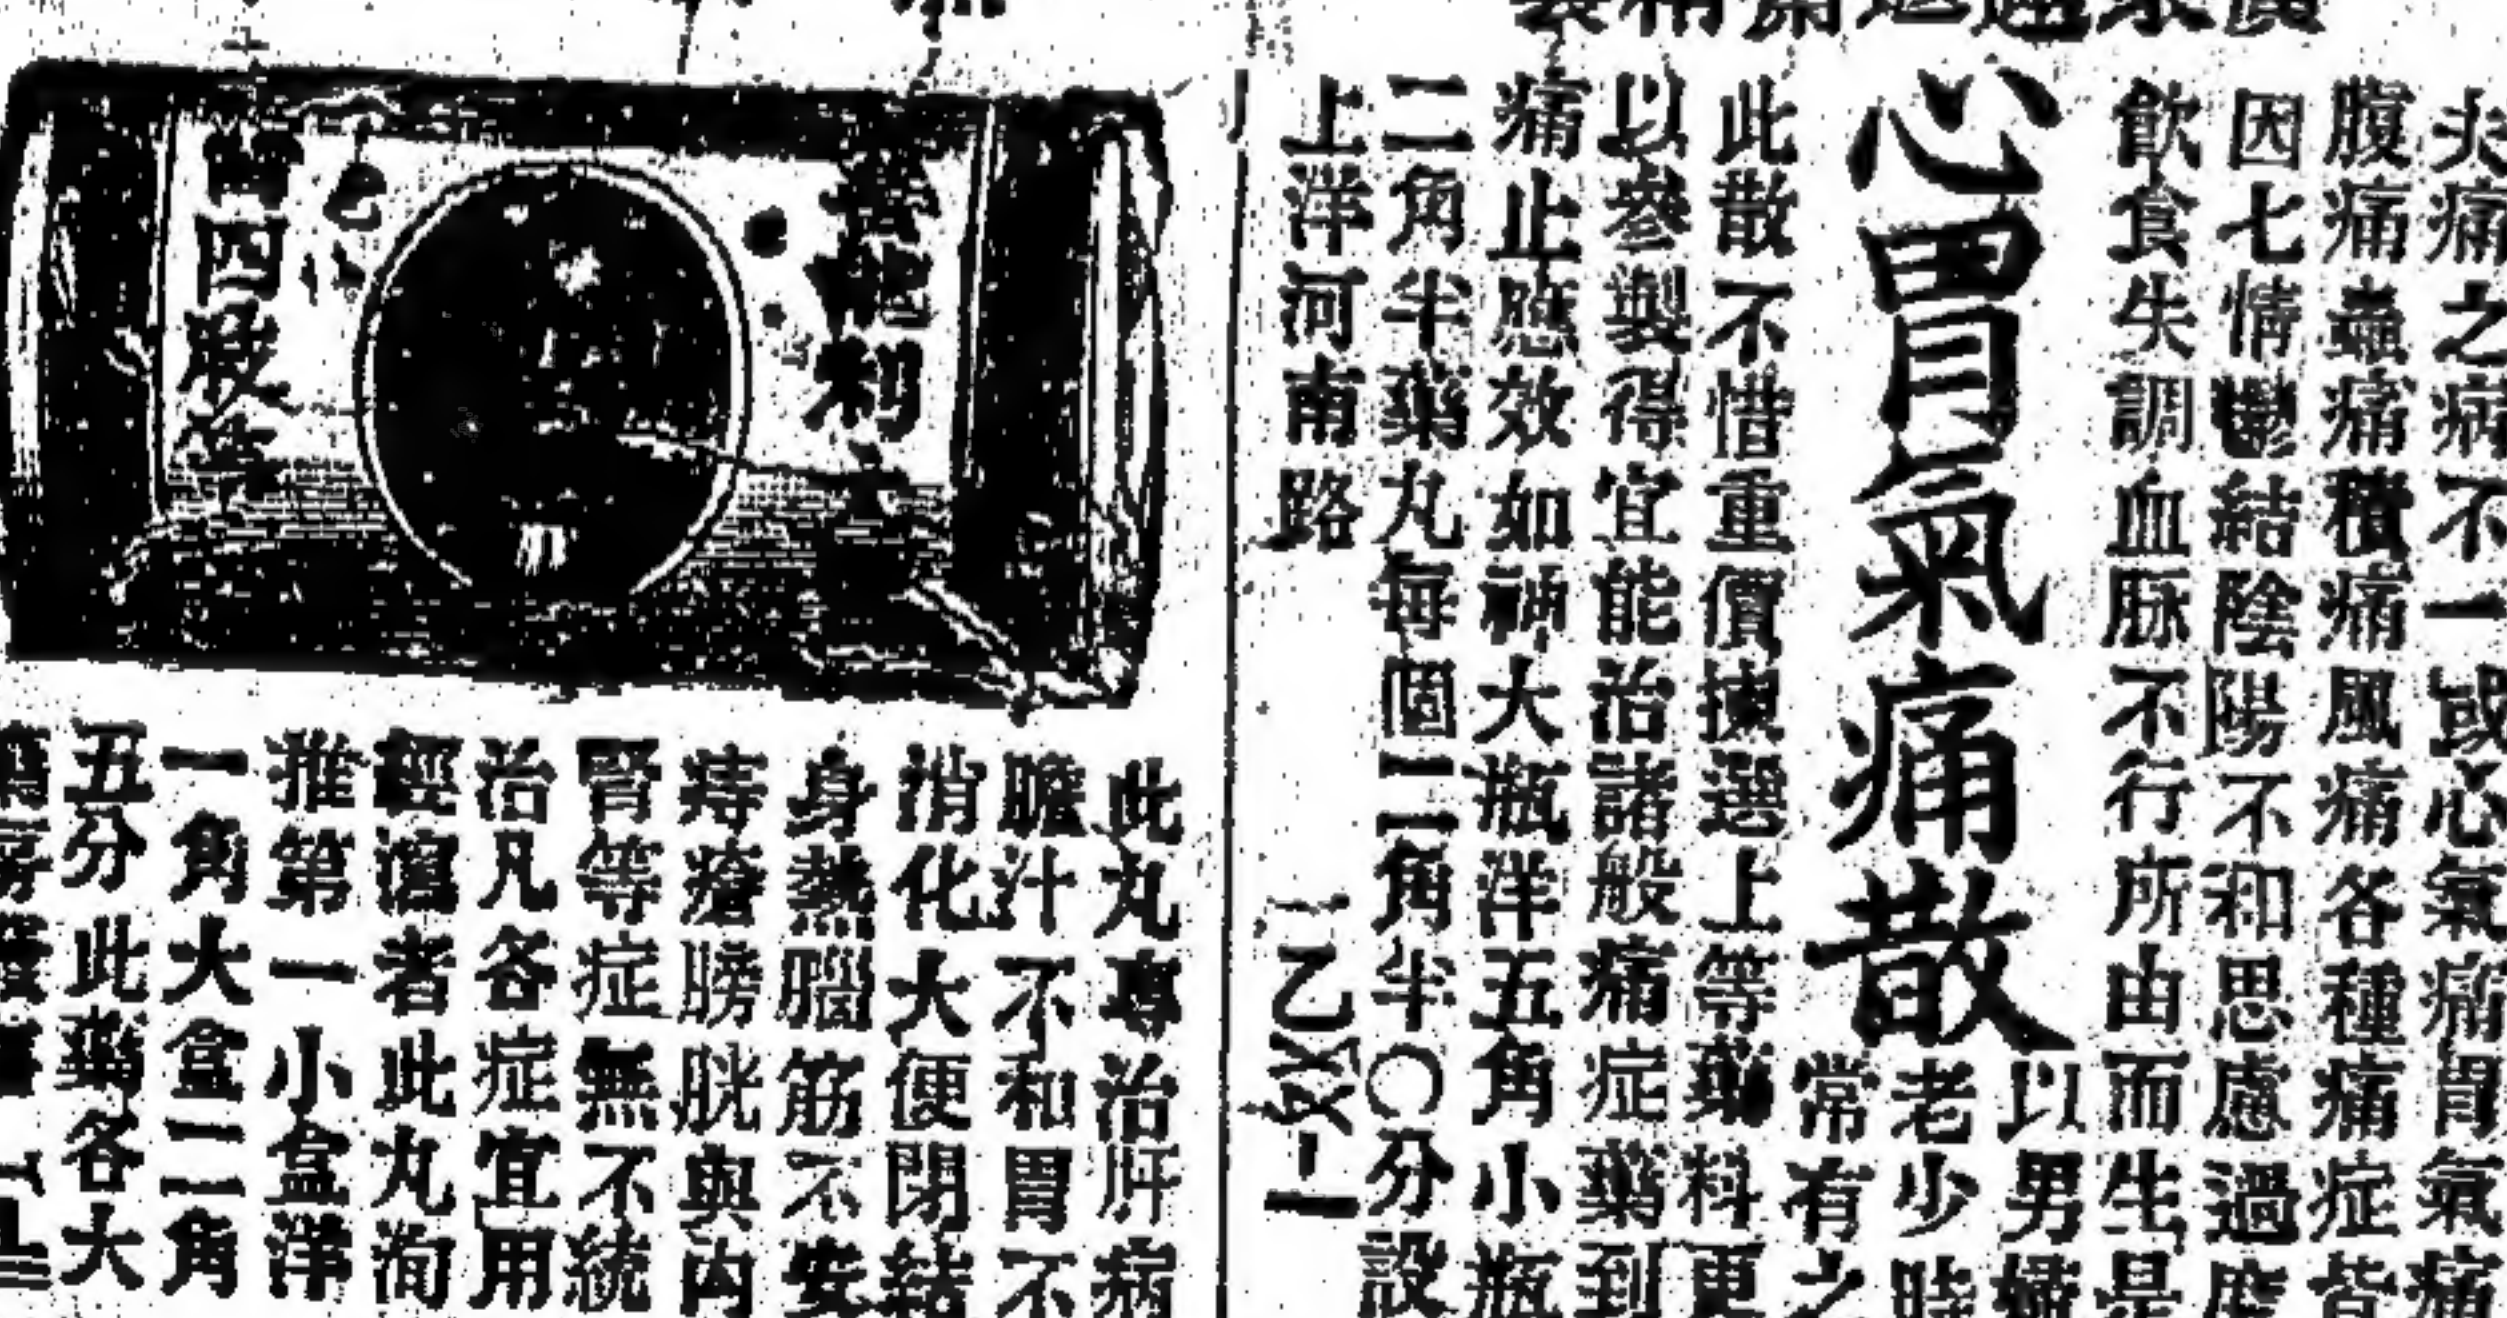 夫痛之病不一或心氣痛胃氣痛
腹痛蟲痛積痛風痛各種痛症皆
因七情鬱結陰陽不和思慮過度
飲食失調血脉不行所由而生是
心胃氣痛散
以男婦
老少時
常有之
此散不惜重價揀選上等藥料更
以參製得宜能治諸般痛症藥到
痛止應效如神大瓶洋五角小瓶
二角半藥丸每個二角半〇分設
上洋河南路
此丸專治肝病
膽汁不和胃不
消化大便閉結
身熱腦筋不安
痔瘡膀胱與內
腎等症無不統
治凡各症宜用
輕瀉者此丸洵
推第一小盒洋
一角大盒二角
五分此藥各大